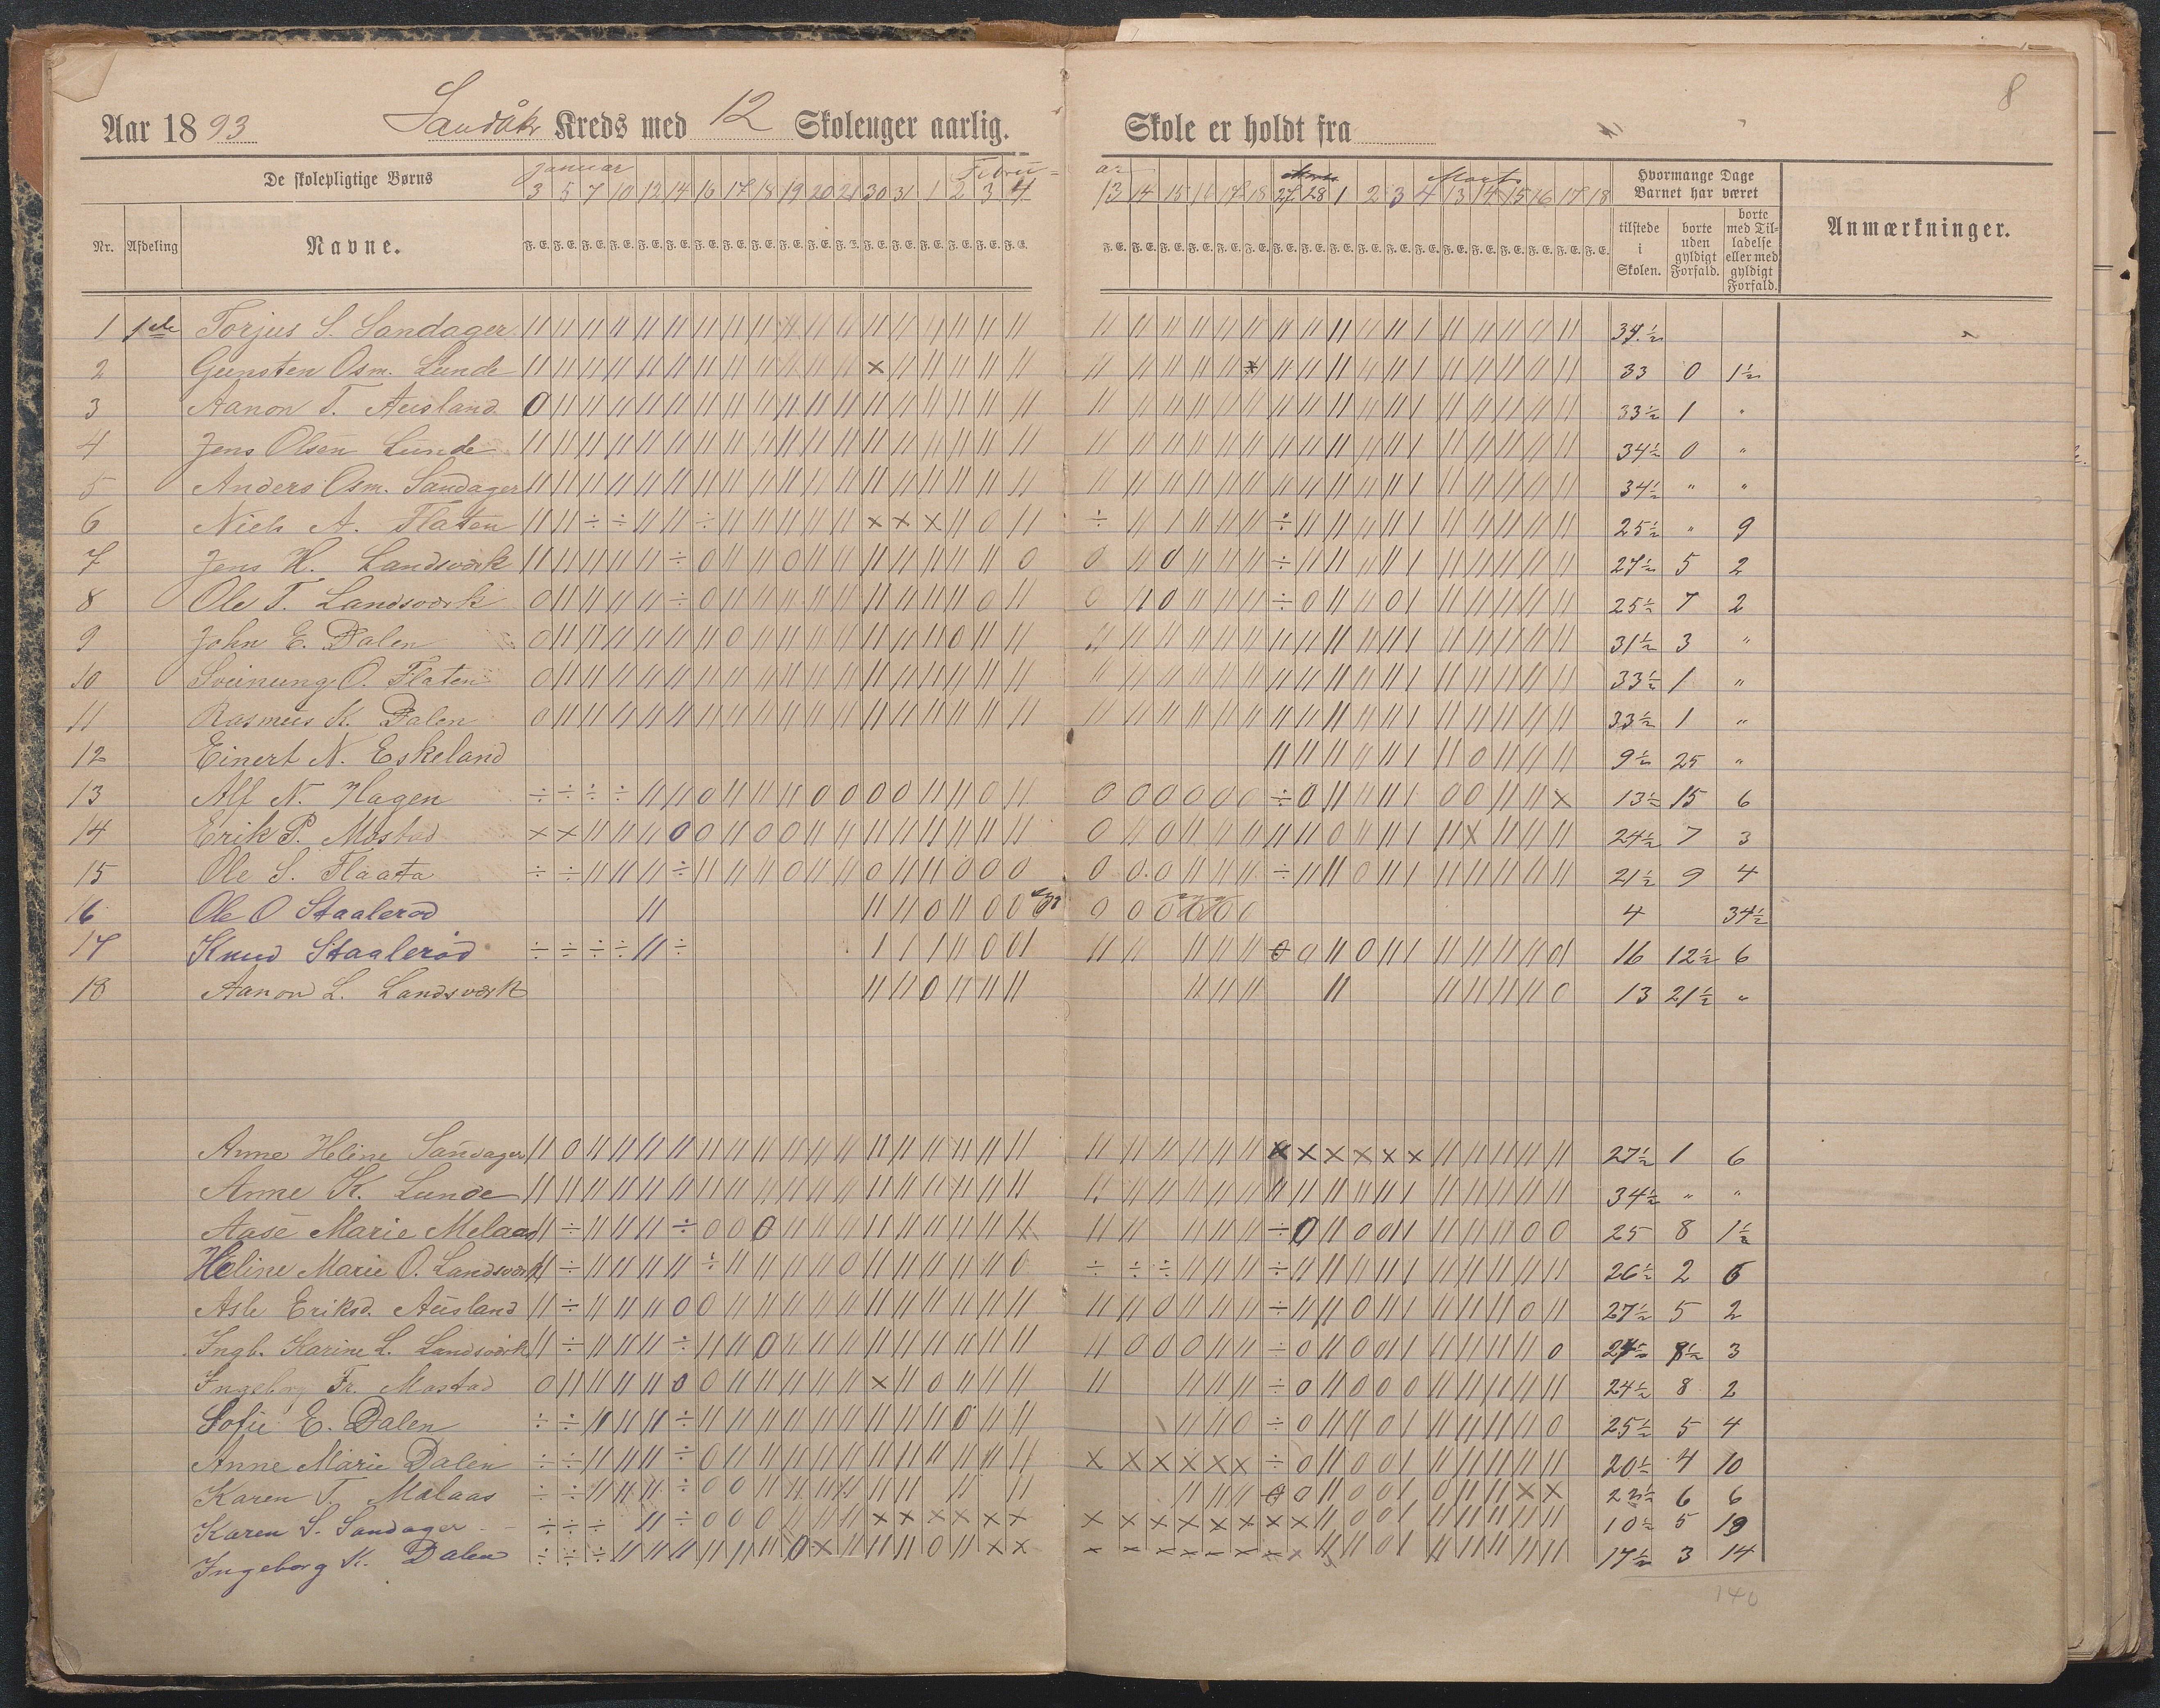 8
Aar 1893 Sandåkr Kreds med 12 Skoleuger aarlig. Skole er holdt fra
De skolepligtige Børns
Januar Febru- ar Marts
3 5 7 10 12 14 16 17 18 19 20 21 30 31 1 2 3 4 13 14 15 16 17 18 27 28 1 2 3 4 13 14 15 16 17 18
Hvormange Dage Barnet har været
Nr. Afdeling Navne.
tilstede i Skolen. borte uden gyldigt Forfald. borte med Tilladelse eller med gyldigt Forfald.
Anmærkninger.
1 1ste Torjus S. Sandager 34½
2 Gunsten Osm. Lunde 33 0 1½
3 Aanon T. Ausland 33½ 1 "
4 Jens Olsen Lunde 34½ 0 "
5 Anders Osm. Sandager 34½ " "
6 Niels A. Flaten 25½ " 9
7 Jens H. Landsværk 27½ 5 2
8 Ole T. Landsværk 25½ 7 2
9 John E. Dalen 31½ 3 "
10 Sveinung O. Flaten 33½ 1 "
11 Rasmus K. Dalen 33½ 1 "
12 Einert N. Eskeland 9½ 25 "
13 Alf N. Hagen 13½ 15 6
14 Erik P. Mostad 24½ 7 3
15 Ole S. Flaata 21½ 9 4
16 Ole O Staalerød 4 34½
17 Knud Staalerød 16 12½ 6
18 Aanon L. Landsværk 13 21½ "
Anne Heline Sandager 27½ 1 6
Anne K. Lunde 34½ " "
Aase Marie Melaas 25 8 1½
Heline Marie O. Landsværk 26½ 2 6
Asle Eriksd. Ausland 27½ 5 2
Ingb. Karine L. Landsværk 8½ 3
Ingeborg Fr. Mostad 24½ 8 2
Sofie E. Dalen 25½ 5 4
Anne Marie Dalen 20½ 4 10
Karen T. Melaas 6 6
Karen S. Sandager 10½ 5 19
Ingeborg K. Dalen 17½ 3 14
140